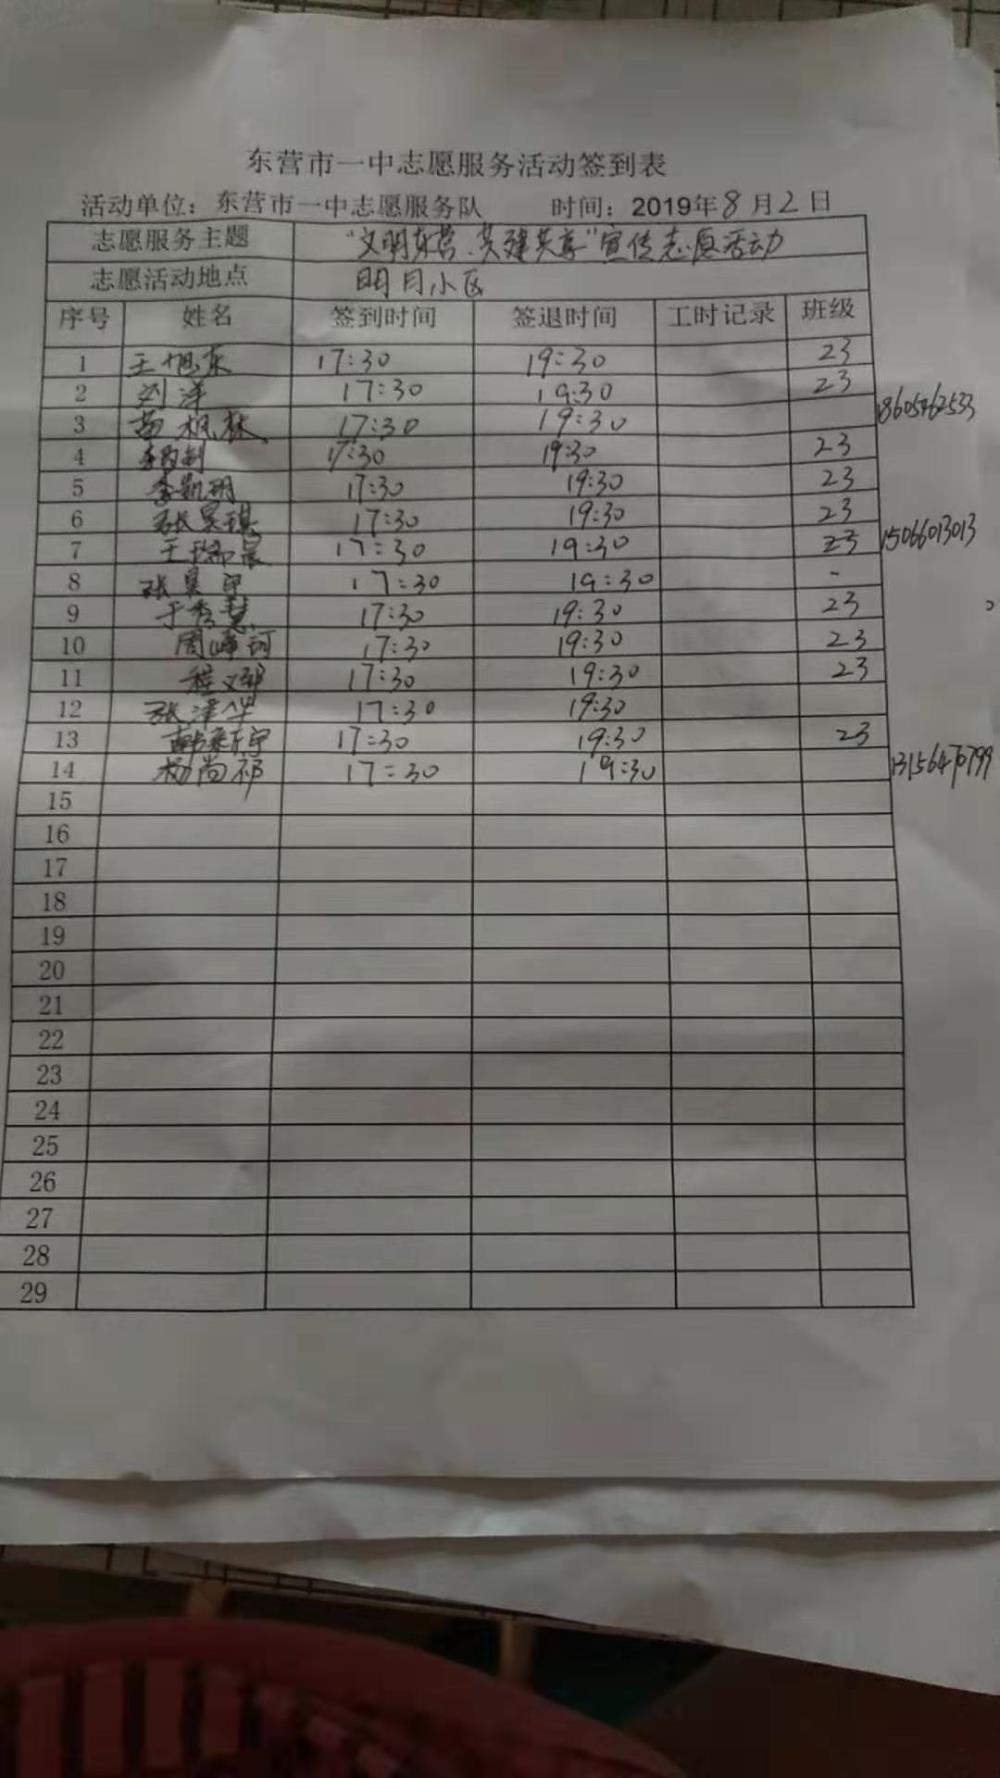 东营市一中志愿服务活动签到表
活动单位：东营市一中志愿服务队 时间：2019年8月2日
志愿服务主题 “文明东营、共建共享”宣传志愿活动
志愿活动地点 明月小区
序号 姓名 签到时间 签退时间 工时记录 班级
1 王旭东 17:30 19:30 23
2 刘洋 17:30 19:30 23
3 苗枫林 17:30 19:30 18605462533
4 17:30 19:30 23
5 李凯玥 17:30 19:30 23
6 张昊琪 17:30 19:30 23
7 王瑞晨 17:30 19:30 23 15066013013
8 张昊宇 17:30 19:30 -
9 于秀慧 17:30 19:30 23
10 周峰珂 17:30 19:30 23
11 程文郁 17:30 19:30 23
12 张津华 17:30 19:30
13 17:30 19:30 23
14 杨尚祁 17:30 19:30 13156470799
15
16
17
18
19
20
21
22
23
24
25
26
27
28
29